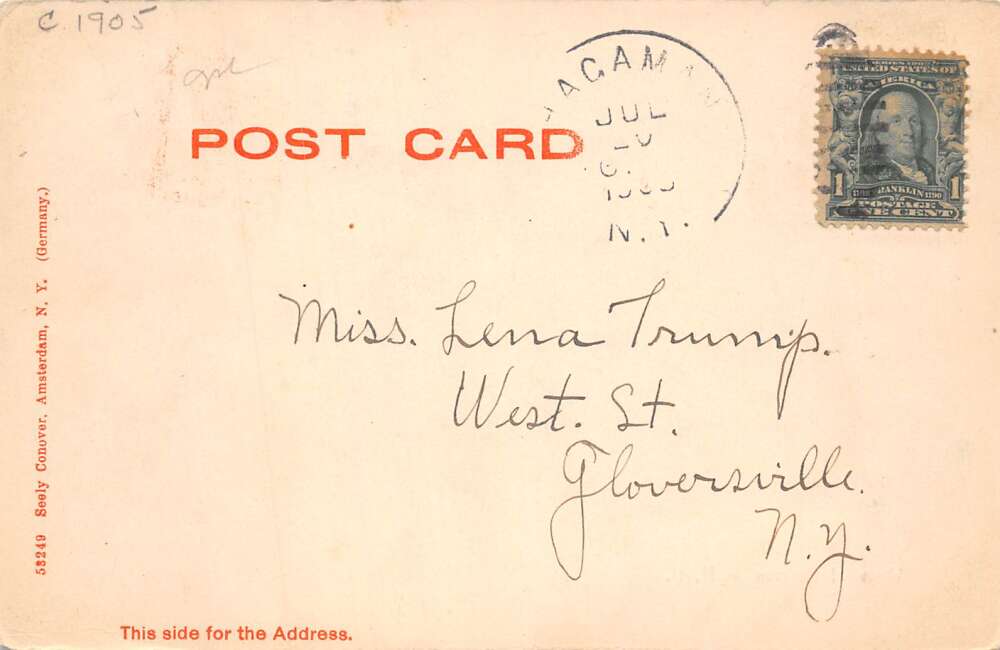 C. 1905
POST CARD
JUL
N.Y.
SERIES 1902
UNITED STATES OF
AMERICA
1 FRANKLIN 1790 1
POSTAGE
ONE CENT
Miss. Lena Trump.
West. St.
Gloversville.
N.Y.
53249 Seely Conover, Amsterdam, N. Y. (Germany.)
This side for the Address.